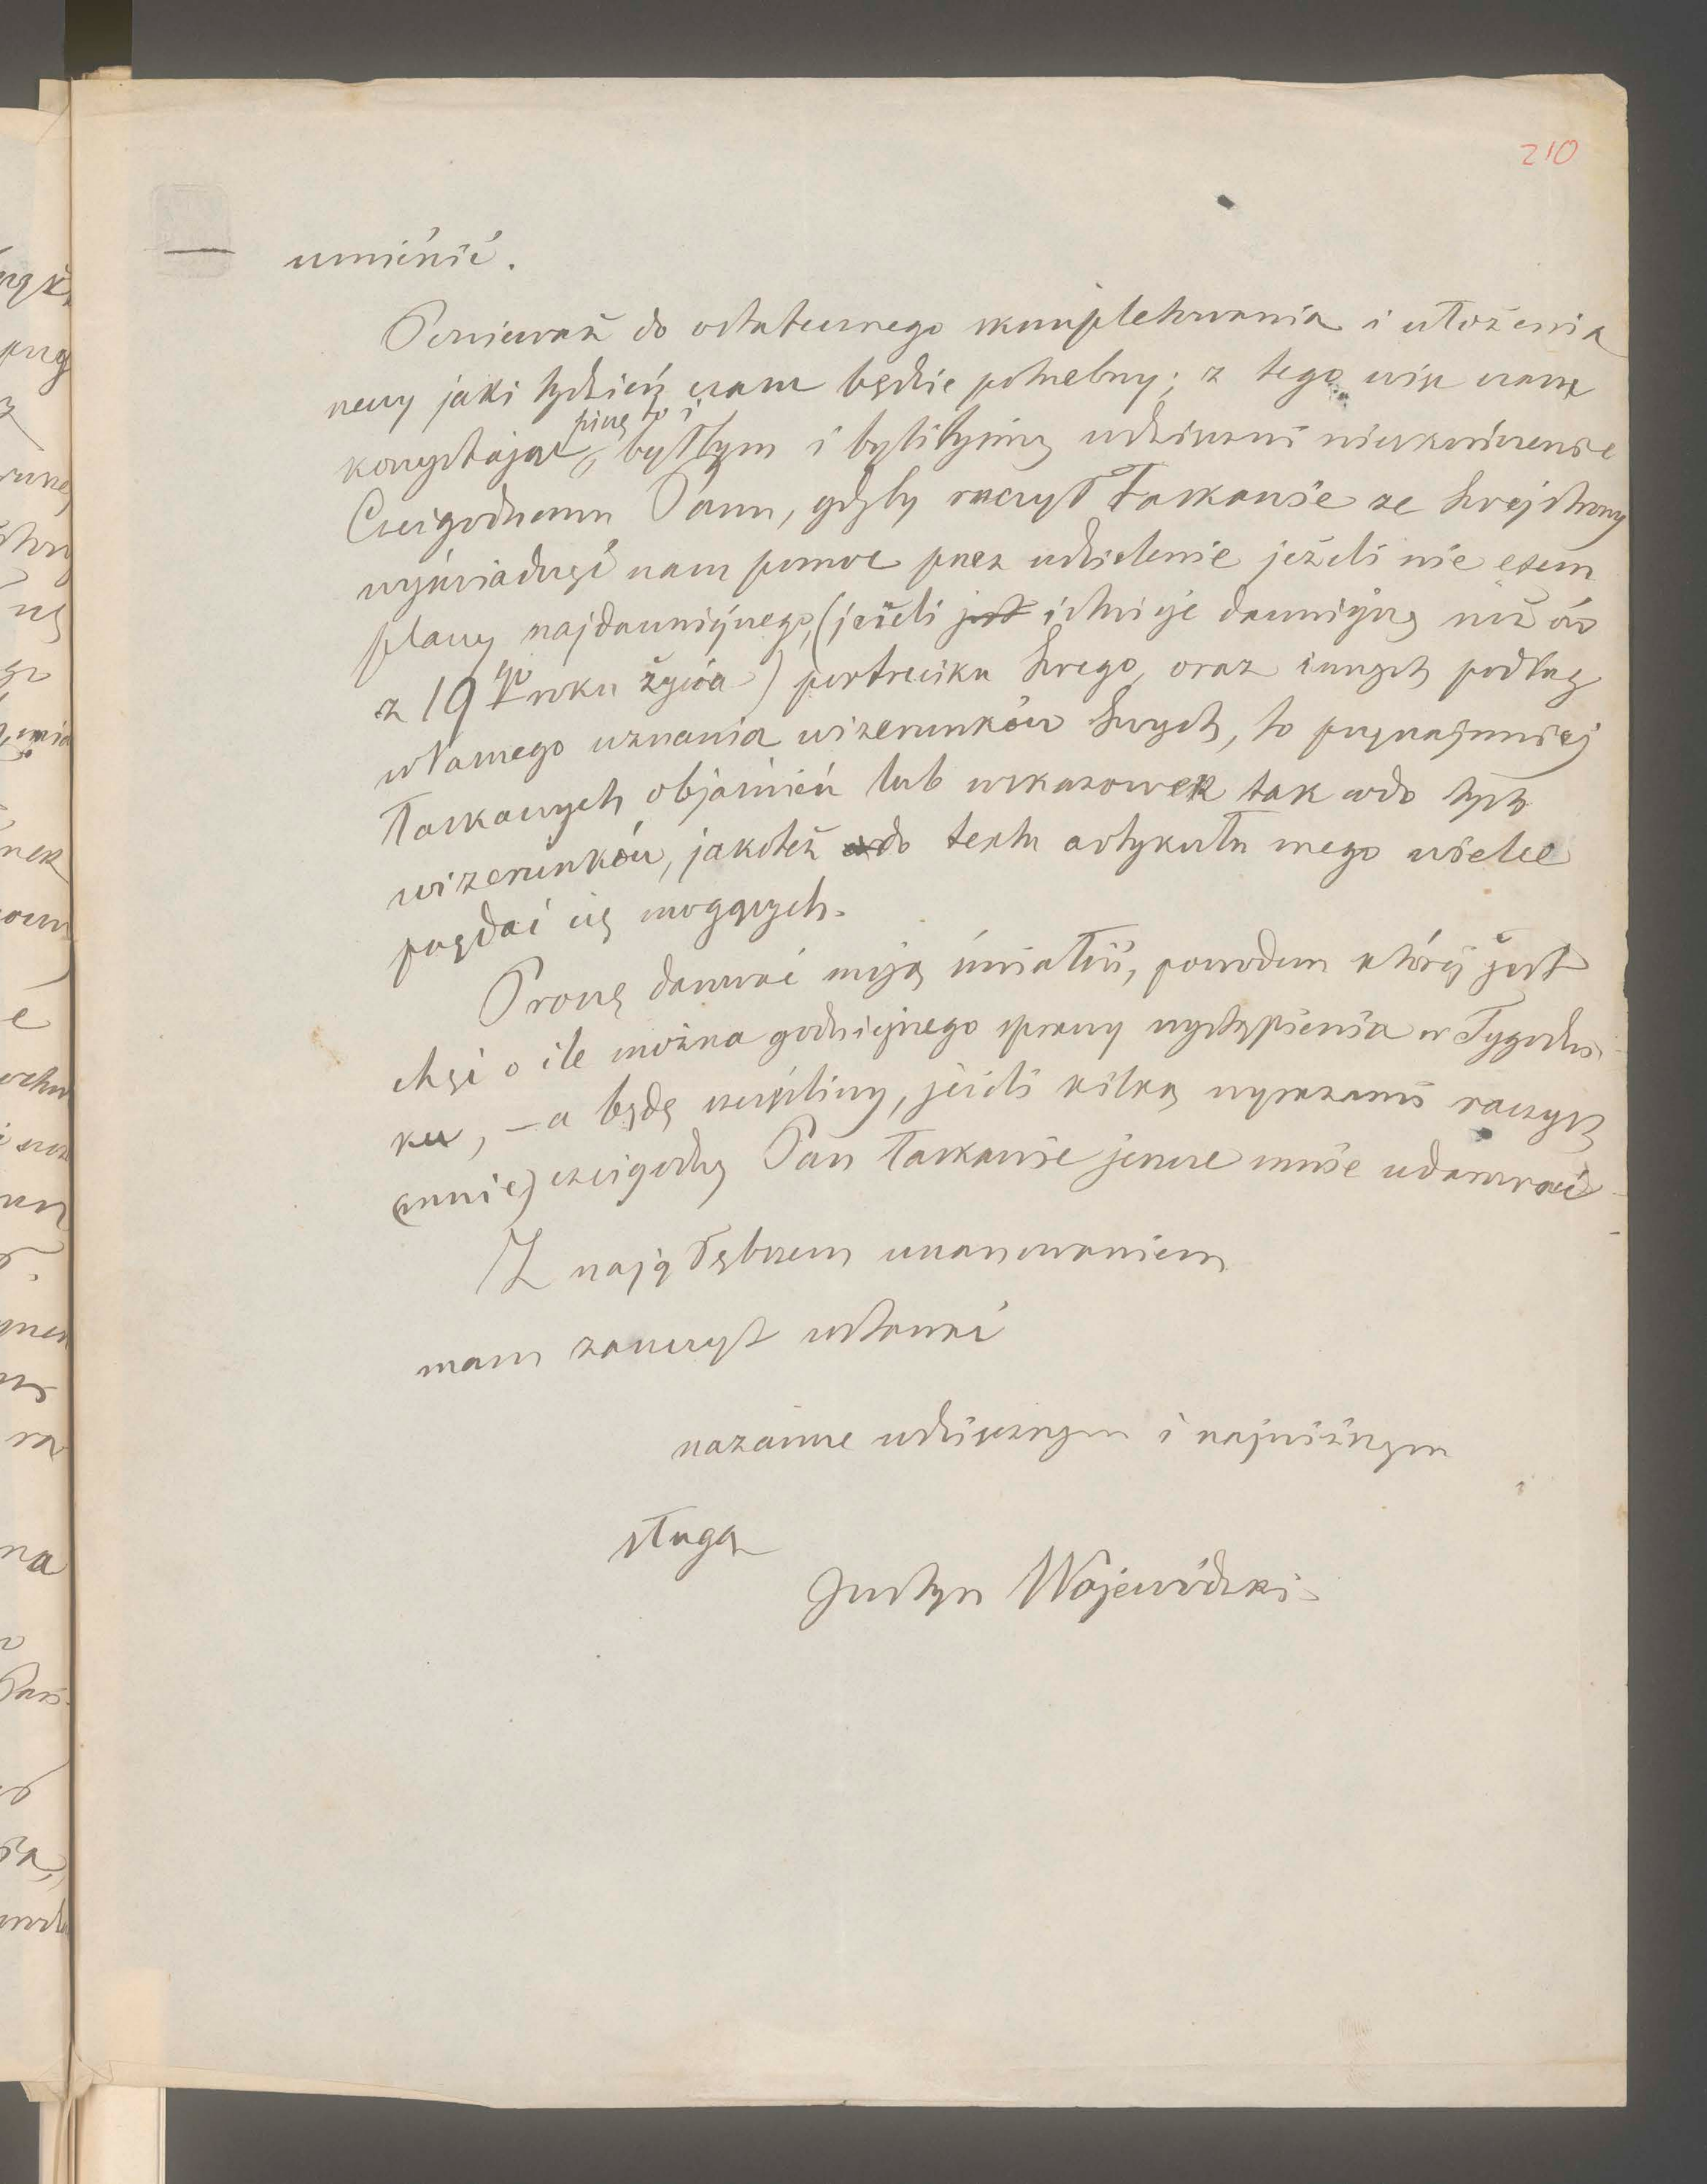 210
umieścić.
Ponieważ do ostatecznego skompletowania i ułożenia
rzeczy jaki tydzień czasu będzie potrzebny; z tego więc czasu
piszę to i
korzystając, byłbym i bylibyśmy wdzięczni nieskończenie
Czcigodnemu Panu, gdyby raczył łaskawie ze swej strony
wyświadczyć nam pomoc przez udzielenie jeżeli nie exem
plarzy najdawniejszego, (jeżeli jest istnieje dawniejszy niż ów
z 19go roku życia) portreciku swego, oraz innych podług
własnego uznania wizerunków swych, to przynajmniej
łaskawych objaśnień lub wskazowek tak co do tych
wizerunków, jakoteż co do textu artykułu mego wielce
przydać się mogących.
Proszę darować moją śmiałość, powodem której jest
chęć o ile można godniejszego sprawy wystąpienia w Tygodni
ku, – a będę szczęśliwy, jeżeli kilką wyrazami raczysz
(mnie) czcigodny Pan łaskawie jeszcze mnie udarować
Z najgłębszem uszanowaniem
mam zaszczyt zostawać
nazawsze wdzięcznym i najniższym
sługą
Justyn Wojewódzki